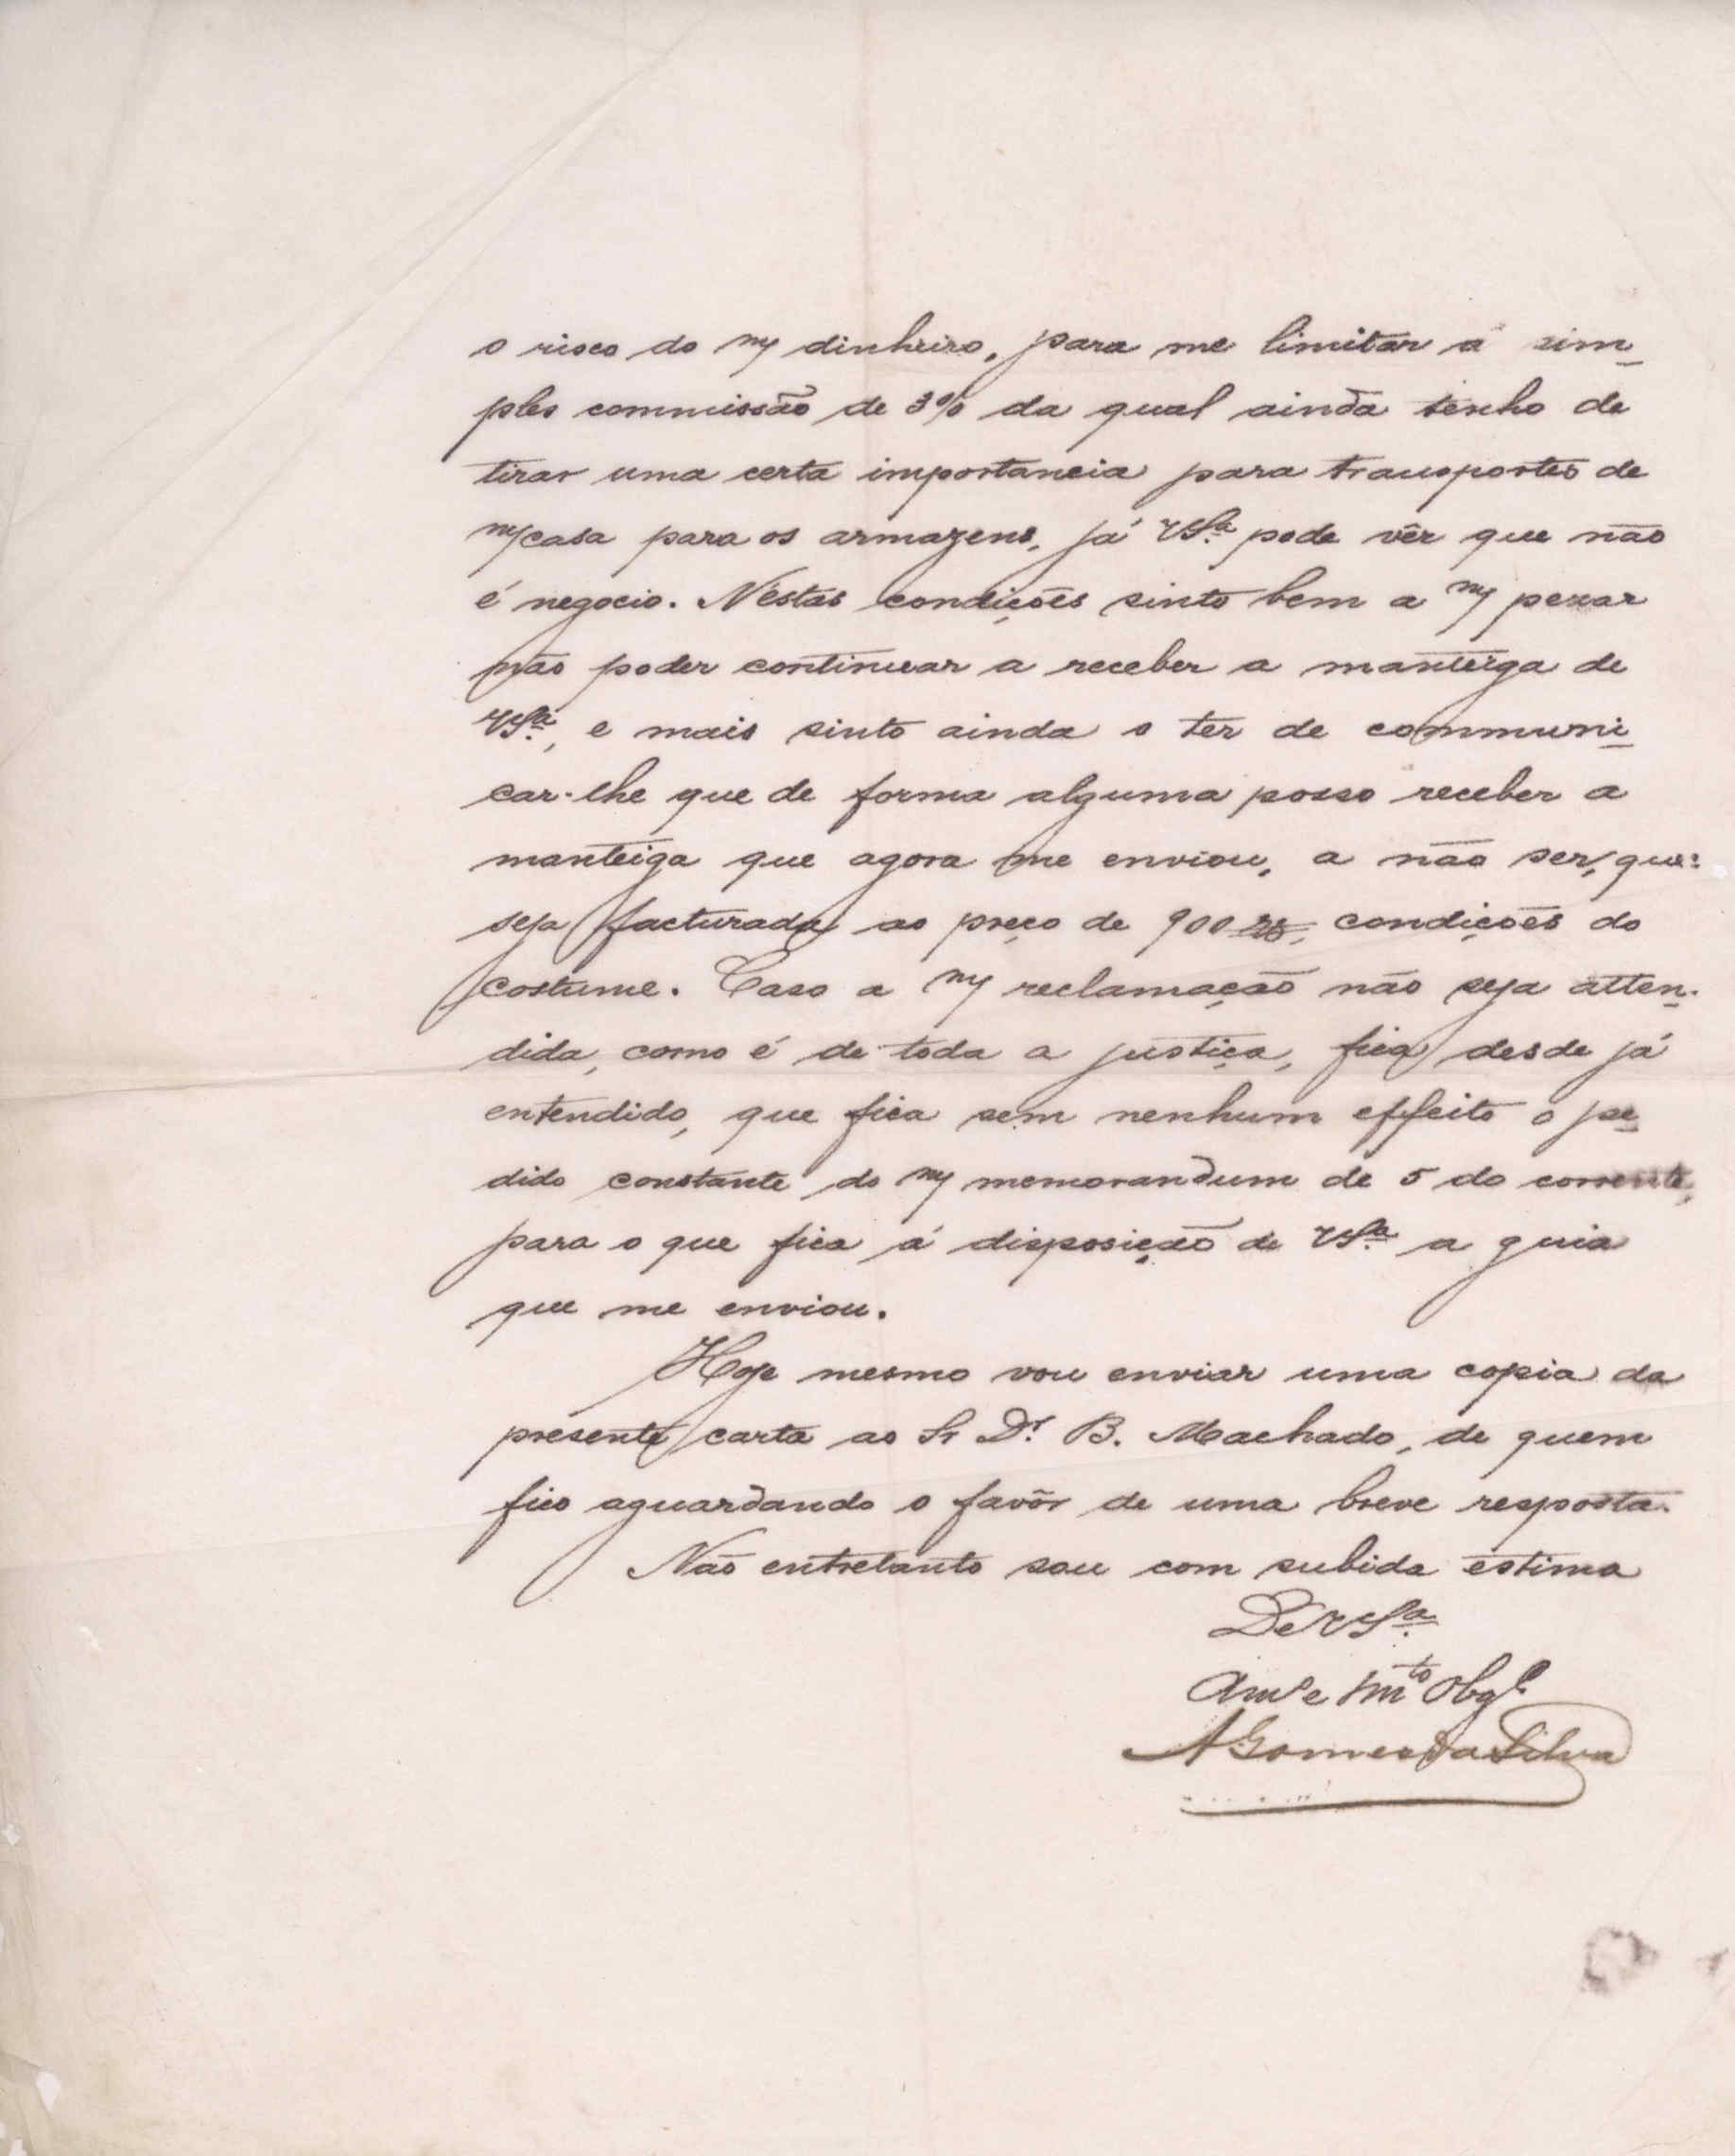 o risco do m/ dinheiro, para me limitar á sim-
ples commissão de 3% da qual ainda tenho de
tirar uma certa importancia para transportes de
m/casa para os armazens, já VSª. pode vêr que não
é negocio. Néstas condições sinto bem a m/ pezar
não poder continuar a receber a manteiga de
VSª., e mais sinto ainda o ter de communi-
car-lhe que de forma alguma posso receber a
manteiga que agora me enviou, a não ser, que
seja facturada ao preço de 900 rs, condições do
costume. Caso a m/ reclamação não seja atten-
dida, como é de toda a justiça, fica desde já
entendido, que fica sem nenhum effeito o pe-
dido constante do m/ memorandum de 5 do corrente,
para o que fica á disposição de VSª. a guia
que me enviou.
Hoje mesmo vou enviar uma copia da
presente carta ao Sr Dr. B. Machado, de quem
fico aguardando o favôr de uma breve resposta.
No entretanto sou com subida estima
De VSª.
Amº e Mto Obgº
A Gomes da Silva